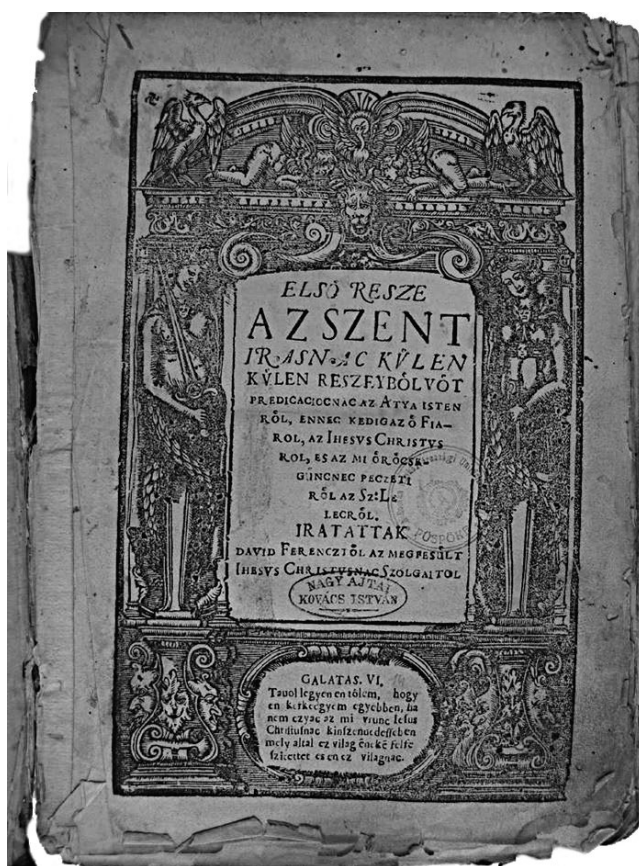 ELSŐ RESZE
AZ SZENT
IRASNAC KVLEN
KVLEN RESZEYBŐL VŐT
PREDICACIOCNAC AZ ATYA ISTEN
RŐL, ENNEC KEDIG AZ Ő FIA-
ROL, AZ IHESVS CHRISTVS
ROL, ES AZ MI ŐRŐCSE
GŰNCNEC PECZETI
RŐL AZ SZ: LE
LECRŐL.
IRATTATTAK
DAVID FERENCZTŐL AZ MEGFESŰLT
IHESVS CHRISTVSNAC SZOLGAITOL
NAGY AJTAI
KOVÁCS ISTVÁN
PÜSPÖKI
GALATAS. VI,
Tauol legyen en tőlem, hogy
en kerkeegyem egyebben, ha
nem czyac az mi vrunc Iesus
Christusnac kinszenuedesseben
mely altal ez vilag énekē felfe
szittet es en ez vilagnac.